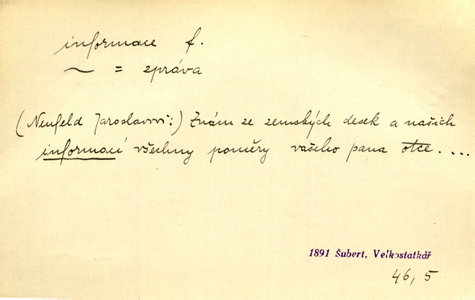 informace f.
~ = zpráva
(Neufeld Jaroslavovi:) Znám ze zemských desek a našich
informací všechny poměry vašeho pana otce. ...
1891 Šubert, Velkostatkář
46, 5